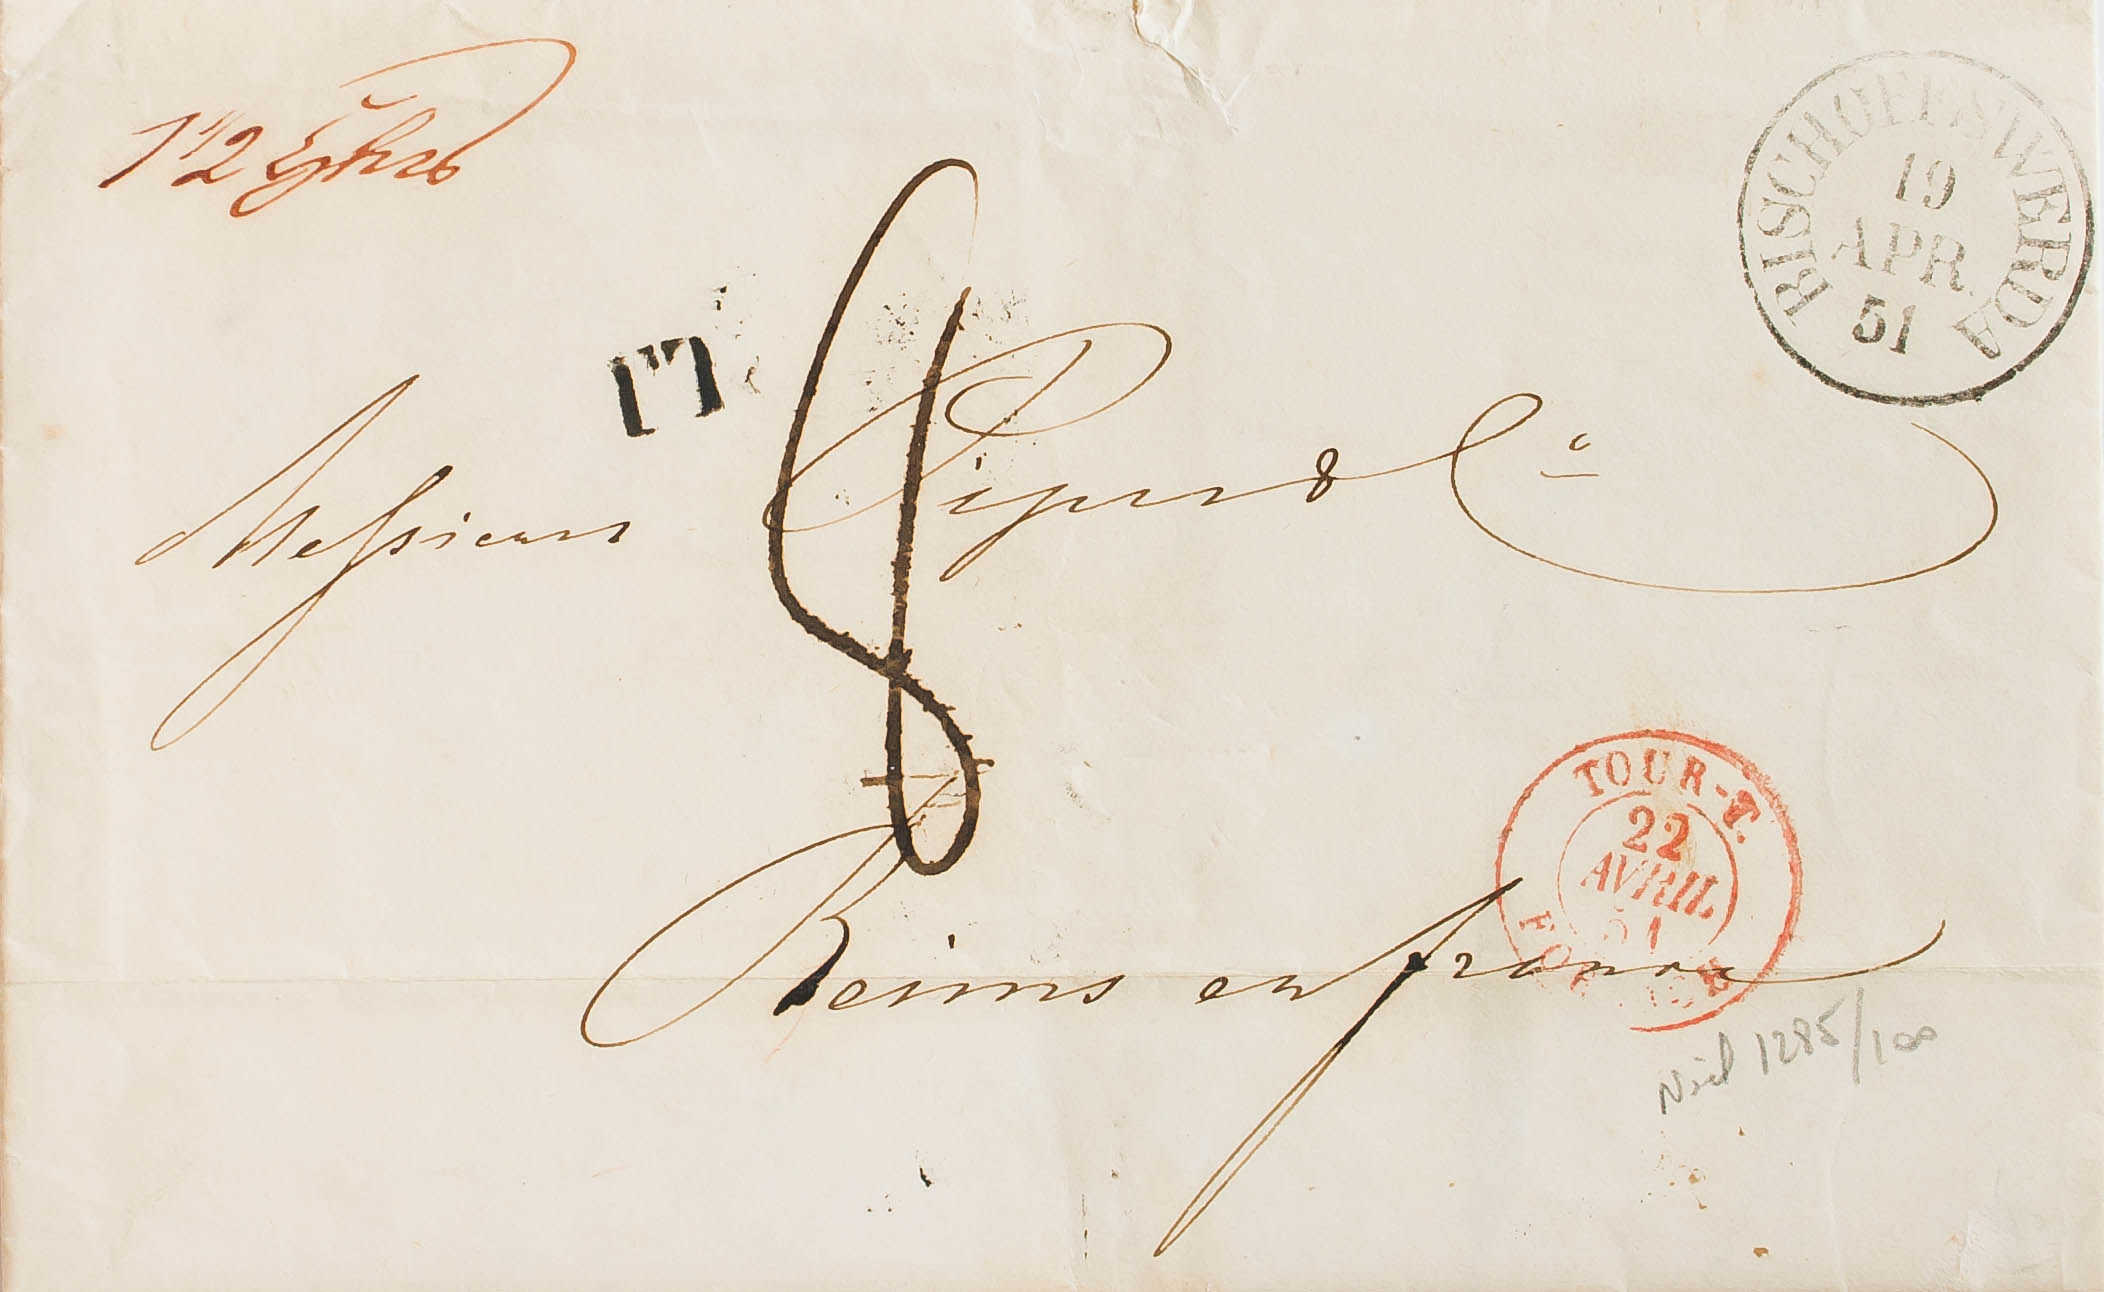 BISCHOFFSWERDA
19
APR
51
Messieurs Piper & Cie
Reims en france
8
TOUR-T.
22
AVRIL
51
FORBACH
Noël 1285/100